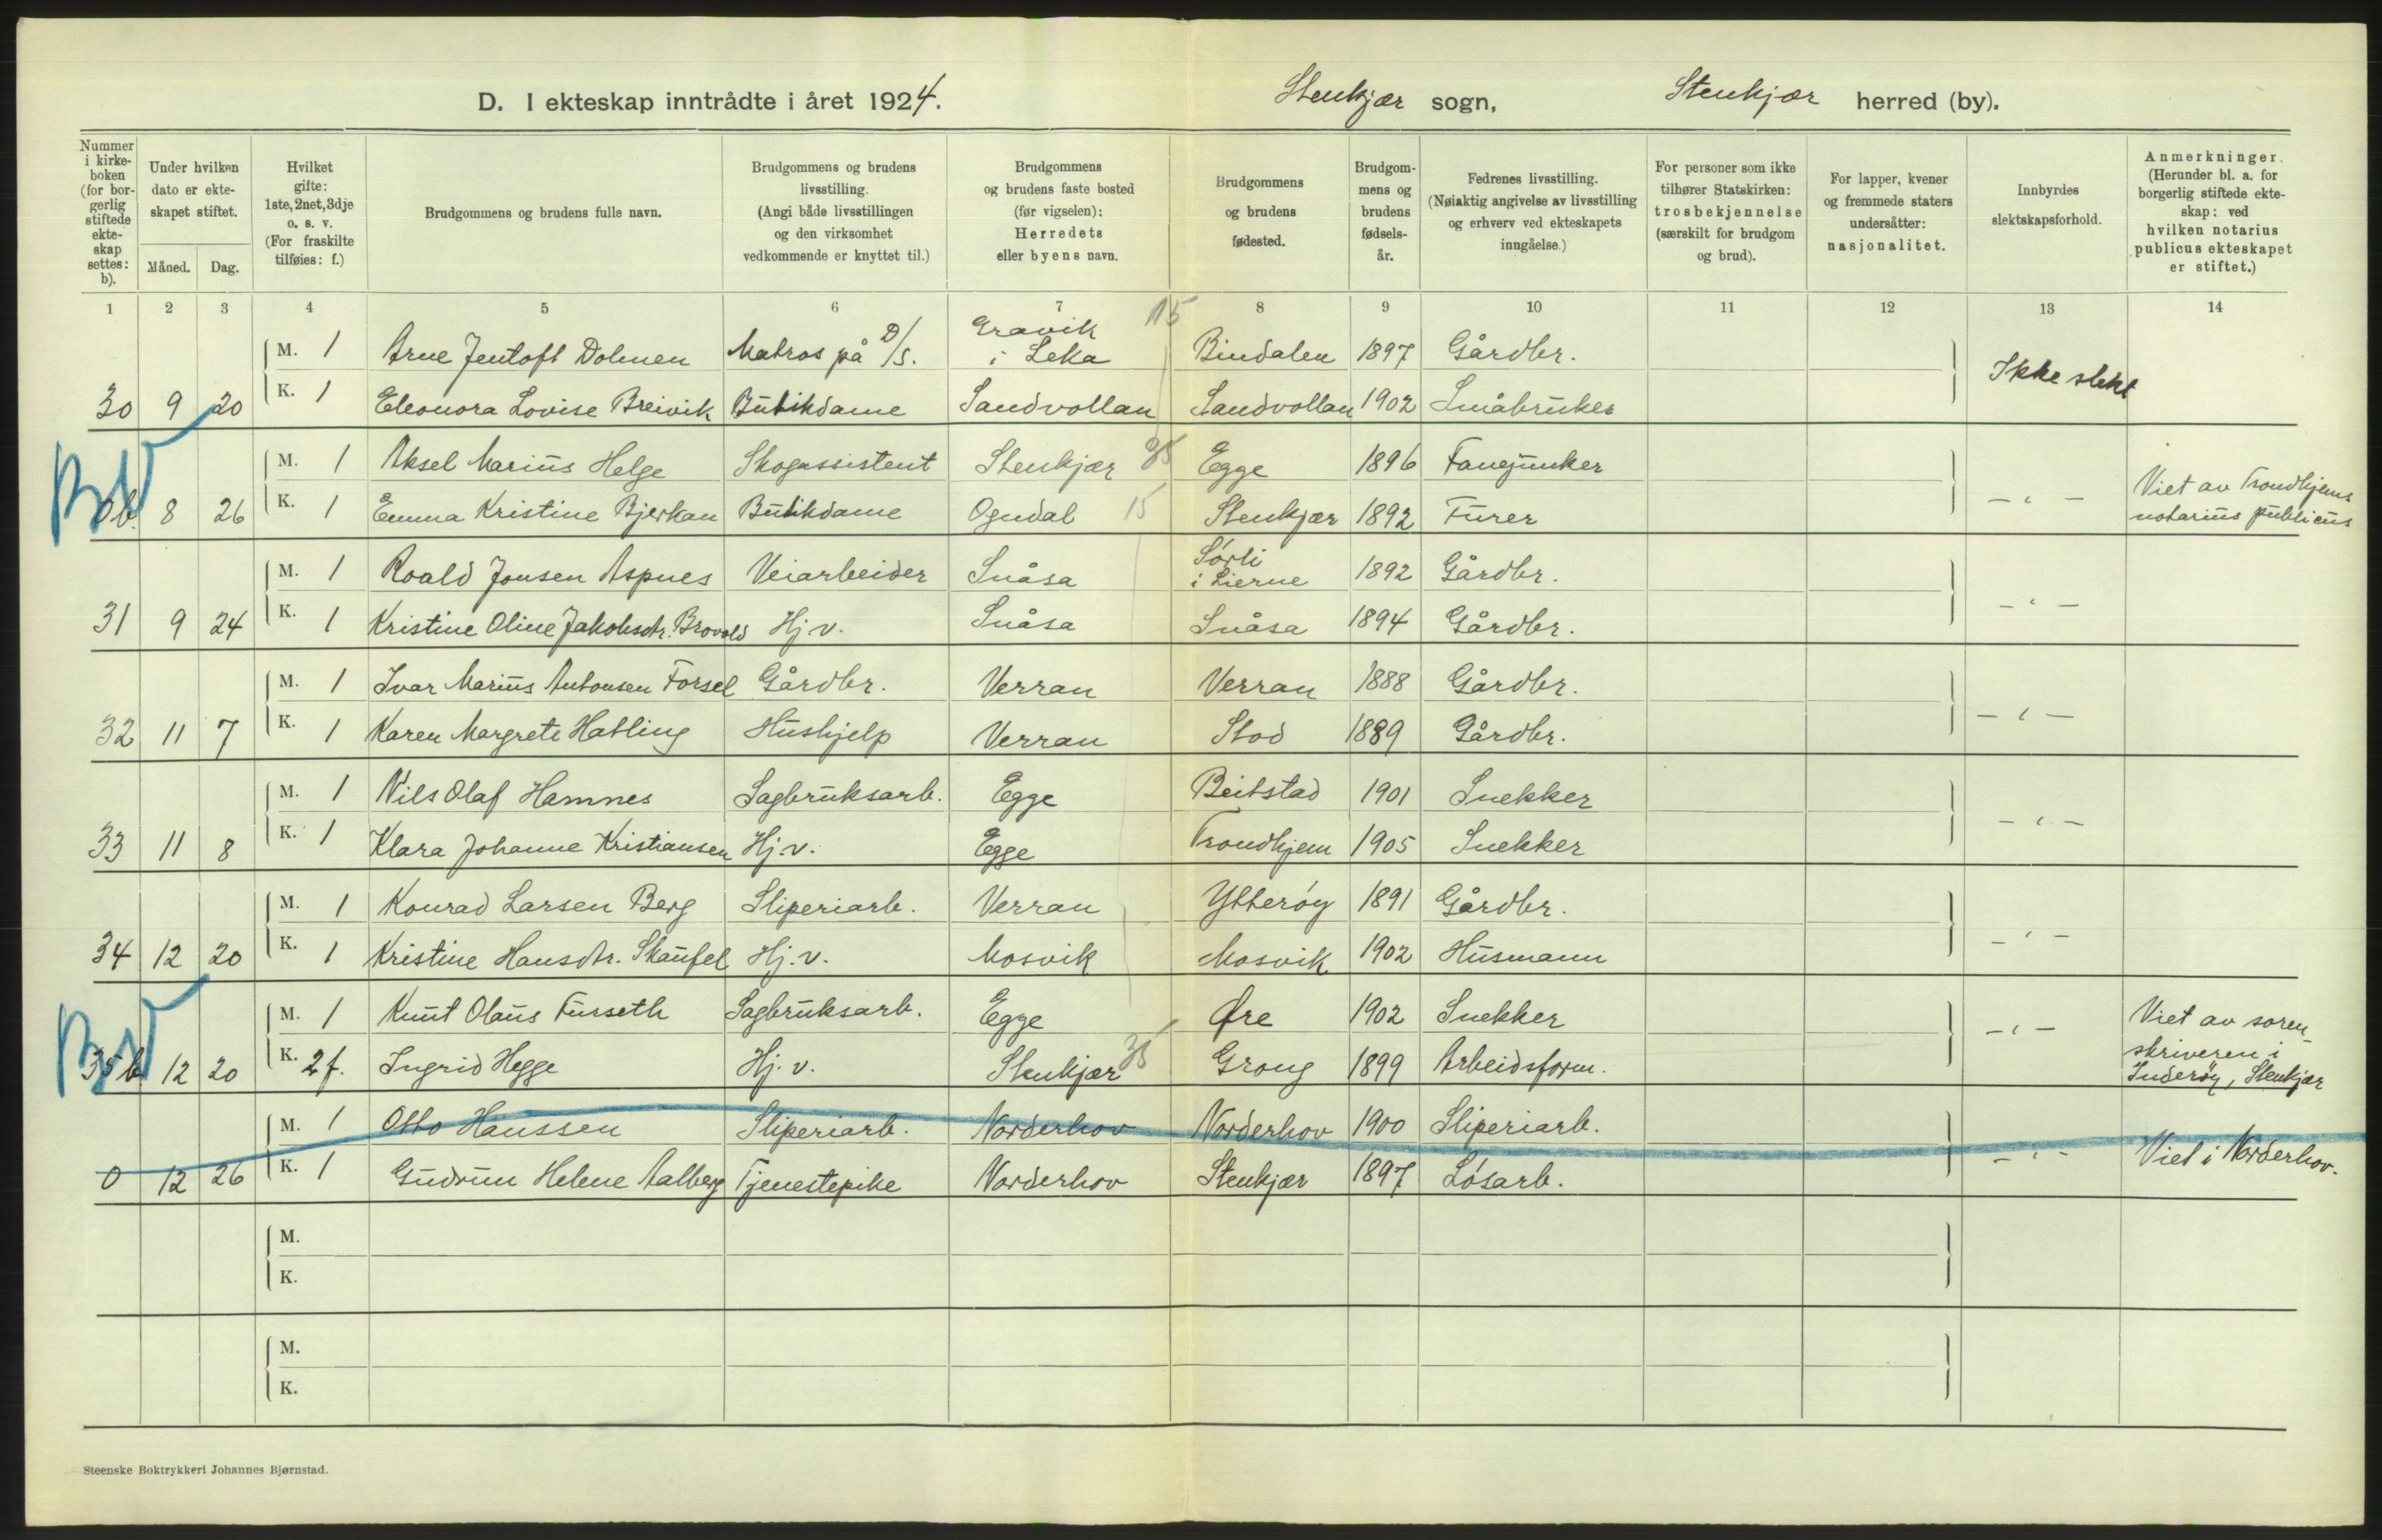 D. I ekteskap inntrådte i året 1924. Stenkjær sogn, Stenkjær herred (by).
Nummer i kirkeboken (for borgerlig stiftede ekteskap settes: b).
Under hvilken dato er ekteskapet stiftet.
Måned. Dag.
Hvilket gifte: 1ste, 2net, 3dje o. s. v. (For fraskilte tilføies: f.)
Brudgommens og brudens fulle navn.
Brudgommens og brudens livsstilling. (Angi både livsstillingen og den virksomhet vedkommende er knyttet til.)
Brudgommens og brudens faste bosted (før vigselen): Herredets eller byens navn.
Brudgommens og brudens fødested.
Brudgommens og brudens fødselsår.
Fedrenes livsstilling. (Nøiaktig angivelse av livsstilling og erhverv ved ekteskapets inngåelse.)
For personer som ikke tilhører Statskirken: trosbekjennelse (særskilt for brudgom og brud).
For lapper, kvener og fremmede staters undersåtter: nasjonalitet.
Innbyrdes slektskapsforhold.
Anmerkninger. (Herunder bl. a. for borgerlig stiftede ekteskap: ved hvilken notarius publicus ekteskapet er stiftet.)
1 2 3 4 5 6 7 8 9 10 11 12 13 14
M. 1 Arne Jentoft Dolmen Matros på D/S. Gravik i Leka 15 Bindalen 1897 Gårdbr. Ikke slekt
30 9 20 K. 1 Eleonora Lovise Breivik Butikdame Sandvollan Sandvollan 1902 Småbruker
M. 1 Aksel Marius Helge Skogassistent Stenkjær 35 Egge 1896 Fanejunker
0b. 8 26 K. 1 Emma Kristine Bjerkan Butikdame Ogndal 15 Stenkjær 1892 Furer — " — Viet av Trondhjems notarius publicus
M. 1 Roald Jonsen Aspnes Veiarbeider Snåsa Sørli i Lierne 1892 Gårdbr.
31 9 24 K. 1 Kristine Oline Jakobsdtr. Brovold Hj.v. Snåsa Snåsa 1894 Gårdbr. — " —
M. 1 Ivar Marius Antonsen Forsel Gårdbr. Verran Verran 1888 Gårdbr.
32 11 7 K. 1 Karen Margrete Hatling Hushjelp Verran Stod 1889 Gårdbr. — " —
M. 1 Nils Olaf Hamnes Sagbruksarb. Egge Beitstad 1901 Snekker
33 11 8 K. 1 Klara Johanne Kristiansen Hj.v. Egge Trondhjem 1905 Snekker — " —
M. 1 Konrad Larsen Berg Sliperiarb. Verran Ytterøy 1891 Gårdbr.
34 12 20 K. 1 Kristine Hansdtr. Skaufel Hj.v. Mosvik Mosvik 1902 Husmann — " —
M. 1 Knut Olaus Furseth Sagbruksarb. Egge Øre 1902 Snekker — " — Viet av soren-
35 b 12 20 K. 2 f. Ingrid Hegge Hj.v. Stenkjær 35 Grong 1899 Arbeidsform. skriveren i Inderøy, Stenkjær
M. 1 Otto Hanssen Sliperiarb. Norderhov Norderhov 1900 Sliperiarb.
0 12 26 K. 1 Gudrun Helene Aalberg Tjenestepike Norderhov Stenkjær 1897 Løsarb. — " — Viet i Norderhov.
M.
K.
M.
K.
Steenske Boktrykkeri Johannes Bjørnstad.